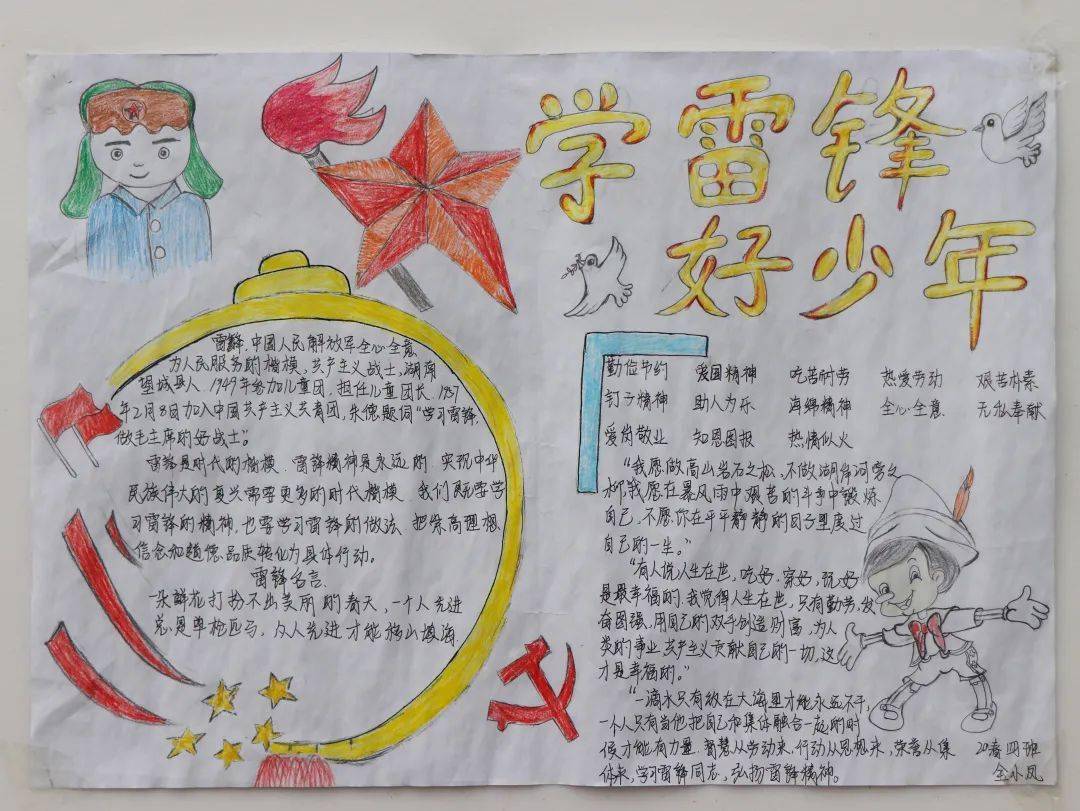 学雷锋
好少年
雷锋,中国人民解放军全心全意
为人民服务的楷模,共产主义战士,湖南
望城县人 1949年参加儿童团,担任儿童团长,1957
年2月8日加入中国共产主义共青团,朱德题词“学习雷锋,
做毛主席的好战士”。
雷锋是时代的楷模,雷锋精神是永远的.实现中华
民族伟大的复兴需要更多的时代楷模.我们既要学
习雷锋的精神,也要学习雷锋的做法,把崇高理想
信念和道德品质转化为具体行动。
雷锋名言
一朵鲜花打扮不出美丽的春天,一个人先进
总是单枪匹马,众人先进才能移山填海
勤俭节约 爱国精神 吃苦耐劳 热爱劳动 艰苦朴素
钉子精神 助人为乐 海绵精神 全心全意 无私奉献
爱岗敬业 知恩图报 热情似火
“我愿做高山岩石之松,不做湖岸河旁之
柳,我愿在暴风雨中艰苦的斗争中锻炼
自己,不愿你在平平静静的日子里度过
自己的一生。”
“有人说人生在世,吃好.穿好,玩好
是最幸福的.我觉得人生在世,只有勤劳,发
奋图强,用自己的双手创造财富,为人
类的事业.共产主义贡献自己的一切,这
才是幸福的。”
“一滴水只有放在大海里才能永远不干,
一个人只有当他把自己和集体融合一起的时
候才能有力量.智慧从劳动来,行动从思想来,荣誉从集
体来,学习雷锋同志,弘扬雷锋精神。
20春四班
全小凤